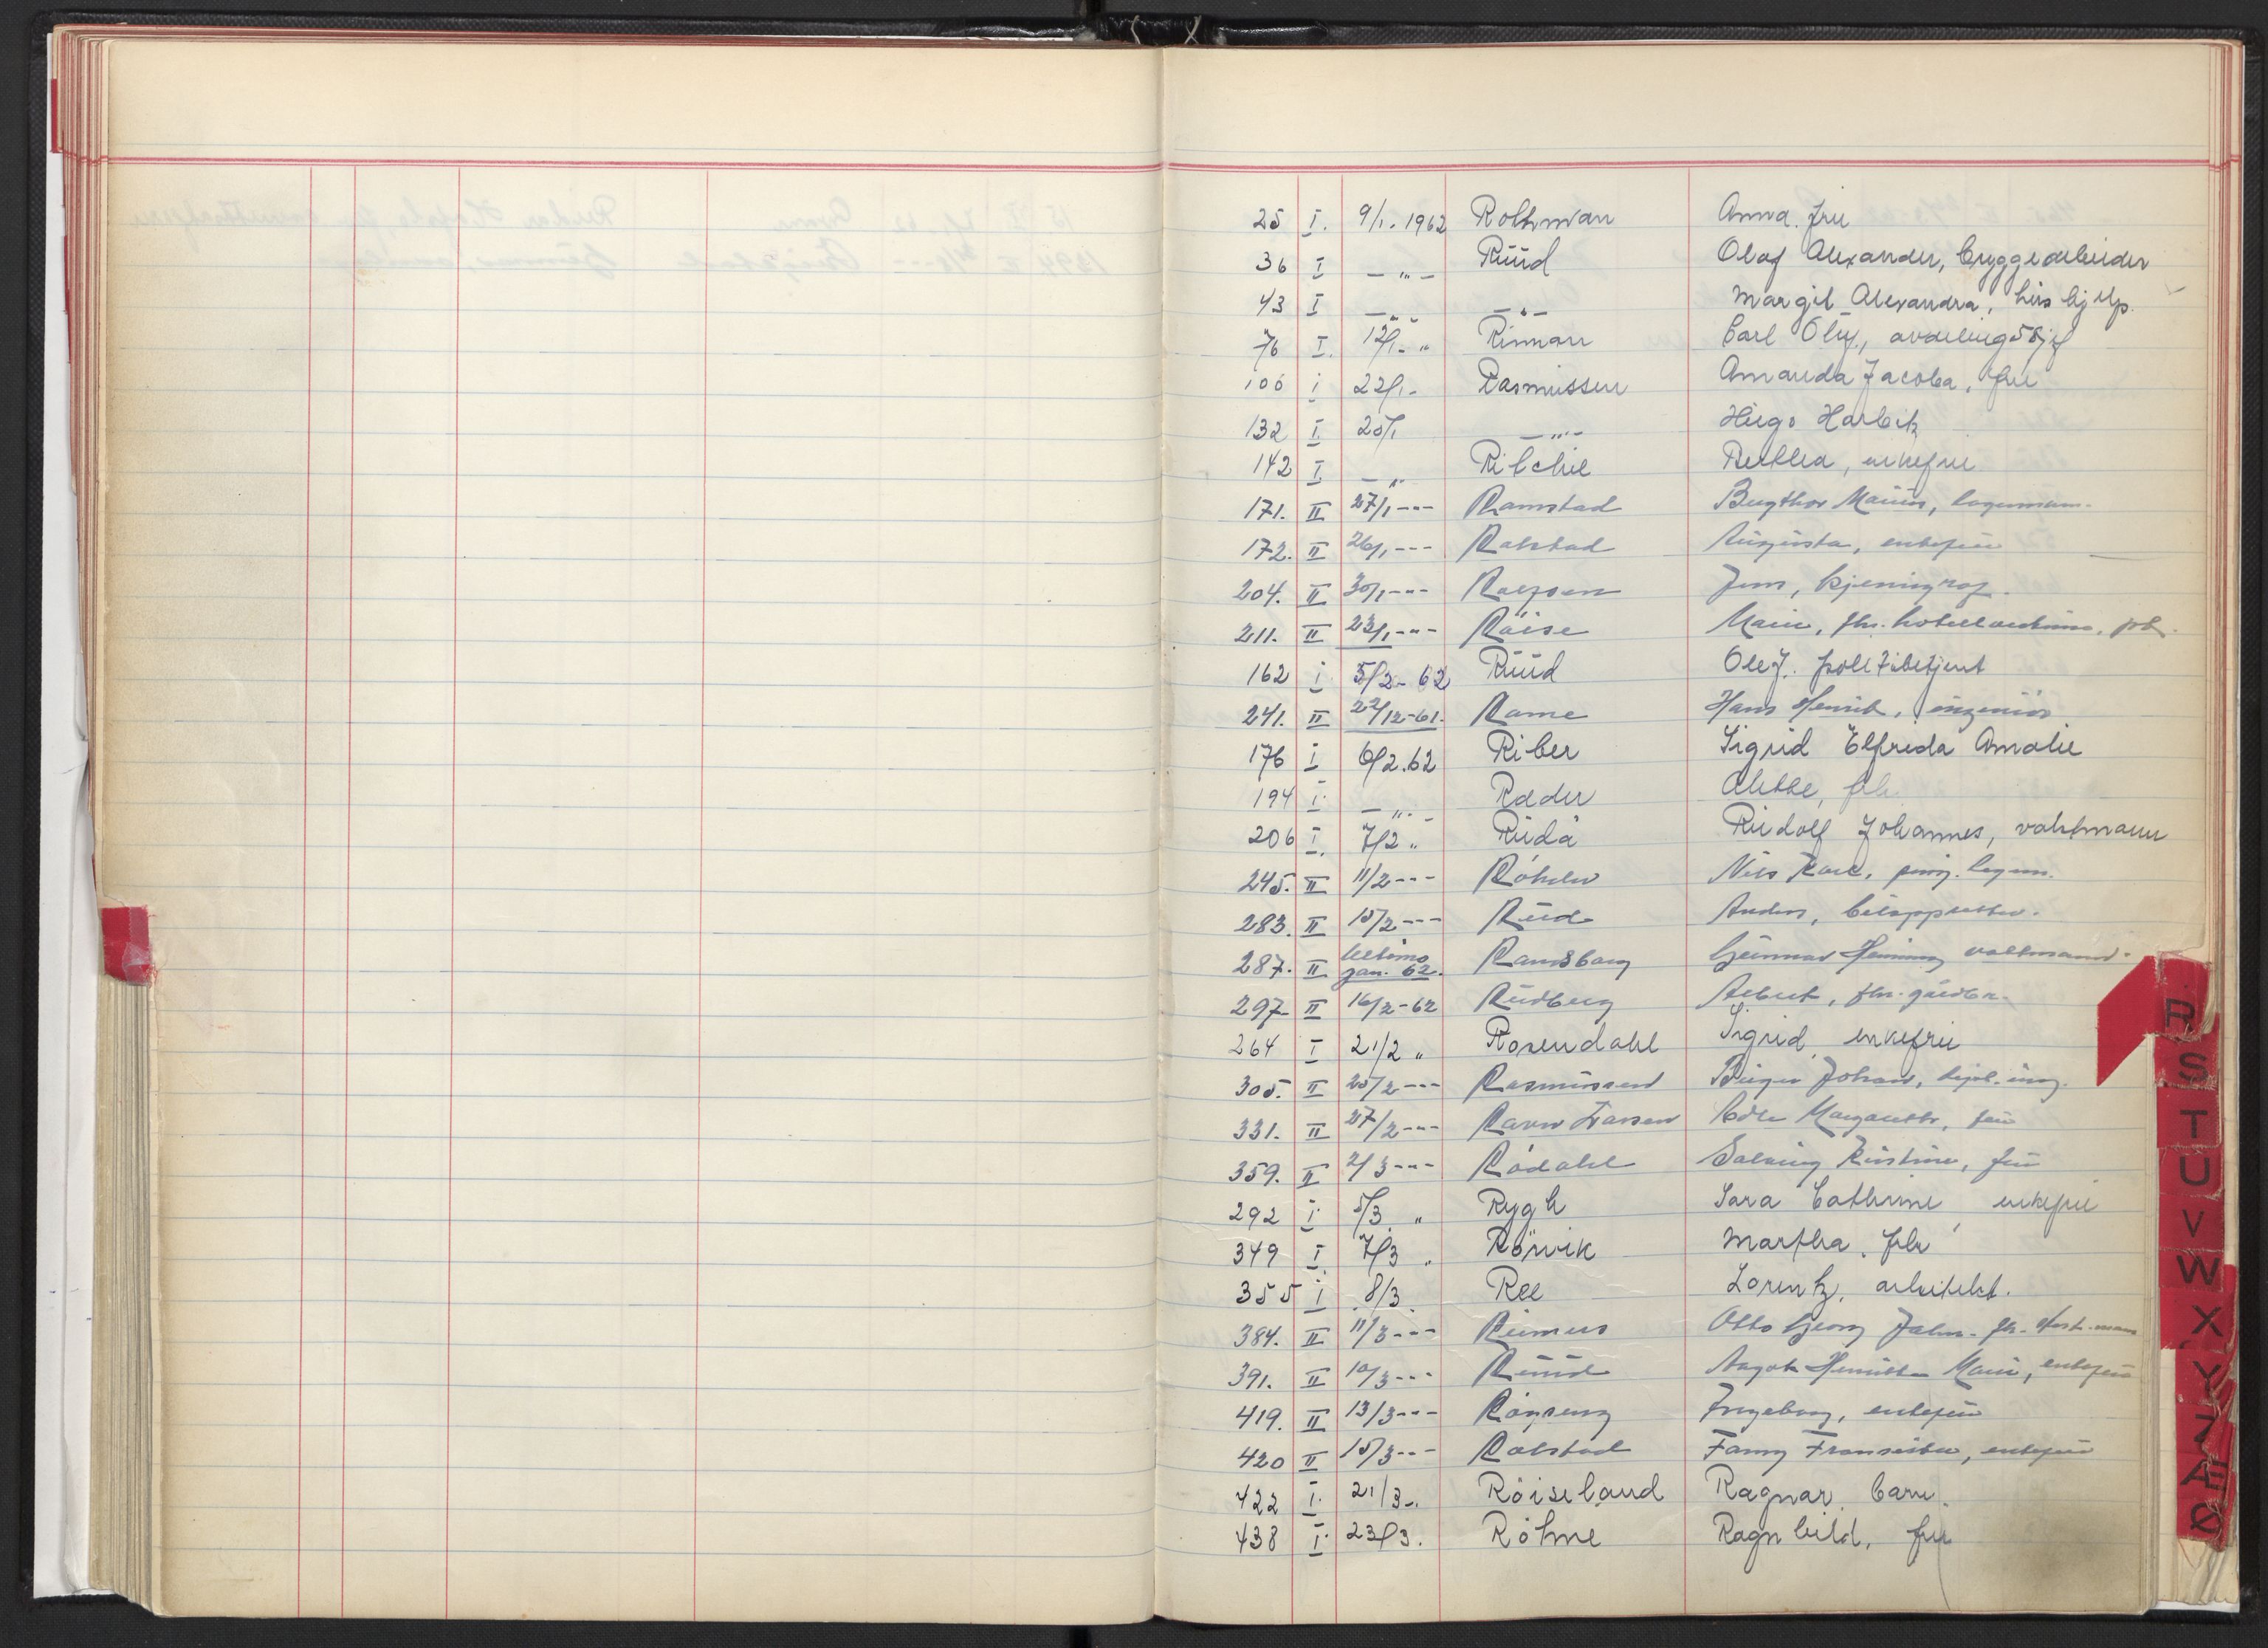 25 I. 9/1. 1962 Rothman Anna. fru
36 I — " — Ruud Olaf Alexander, bryggearbeider
43 I — " — — " — Margit Alexandra, hushjelp.
76 I. 12/1- " Rinnan Carl Oluf, avdelingssjef
106 I 22/1- Rasmussen Amanda Jacoba, fru
132 I. 25/1 — " — Hugo Harbitz
142 I. — " Ritchie Bertha, enkefru
171. II 27/1 --- Ramstad Bergthor Marius, lagermann.
172. II 26/1 --- Rakstad Augusta, enkefru
204. II 30/1 --- Jens,
211. II 23/1 --- Röise Marie, fhv.
162 I 5/2- 62 Ruud Ole J. politibetjent
241. II 22/12-61. Rame Hans Henrik, ingeniör
176 I 6/2.62 Riber Sigrid Elfrida Amalie
194 I. — " — Ræder Alethe, frk.
206 I. 7/2 " Ruda Rudolf Johannes, vaktmann
245. II 11/2 --- Nils
283. II 15/2 --- Ruud Anders,
287. II ultimo jan. 62. Ramsborg Gunnar Henning vaktmann.
297 II 16/2-62 Rudberg Albert, fhv. gårdbr.
264 I 21/2 " Rosendahl Sigrid, enkefru
305. II 25/2 --- Rasmussen Birger Johan, ing.
331. II 27/2 --- Ravn Larsen Margarethe, fru
359. II 2/3 --- Rödahl Solveig Kirstine, fru
292 I 5/3 " Rygh Sara Cathrine, enkefru
349 I. 7/3 " Rörvik Martha, frk
355 I 8/3. Ree Lorentz, arkitekt.
384. II 11/3 --- Reimers Otto Georg
391. II 10/3 --- Ruud Aagot Henriette Marie, enkefru
419. II 13/3 --- Ingeborg, enkefru
420 II 15/3 --- Rakstad Fanny enkefru
422 I. 21/3 -. Röiseland Ragnar
438 I. 23/3. Röhne Ragnhild, fru
R
S
T
U
V
W
X
Y
Z
Æ
Ø